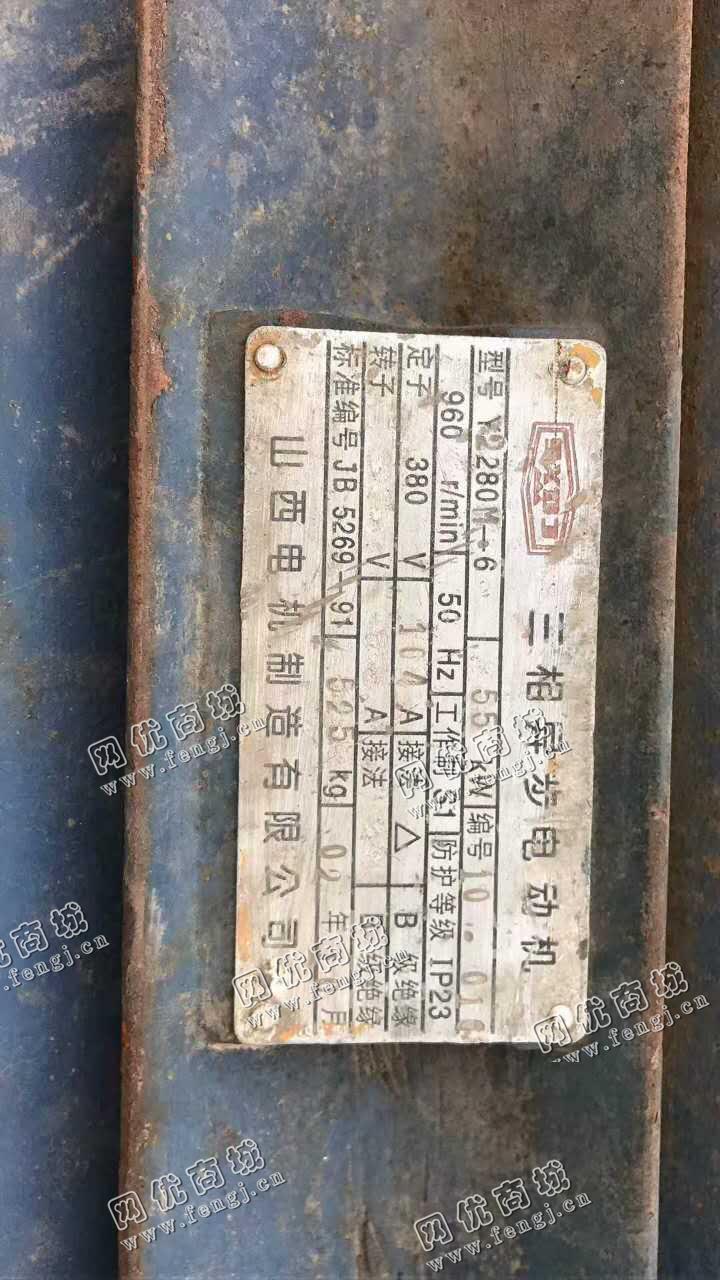 三相异步电动机
型号 Y2280M-6 55 kW 编号 10
960 r/min 50 Hz 工作制 S1 防护等级 IP23
定子 380 V A 接法 △ B 级绝缘
转子 V A 接法 级绝缘
标准编号 JB 5269-91 525 kg 02 年 月
山西电机制造有限公司
网优商城
www.fengj.cn
网优商城
www.fengj.cn
网优商城
www.fengj.cn
网优商城
www.fengj.cn
网优商城
www.fengj.cn
网优商城
www.fengj.cn
网优商城
www.fengj.cn